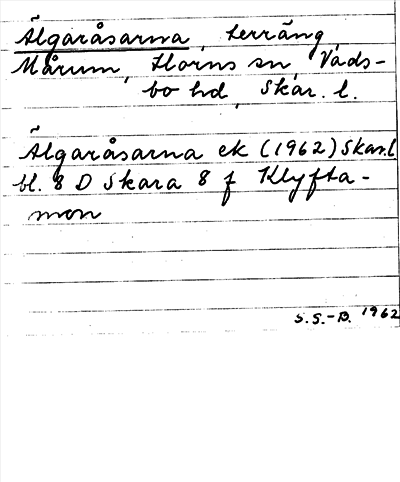 Älgaråsarna, terräng,
Mårum, Horns sn, Vads-
bo hd, Skar. l.
Älgaråsarna ek (1962) Skar.l
bl. 8 D Skara 8 f Klyfta-
mon
S.S.-B. 1962